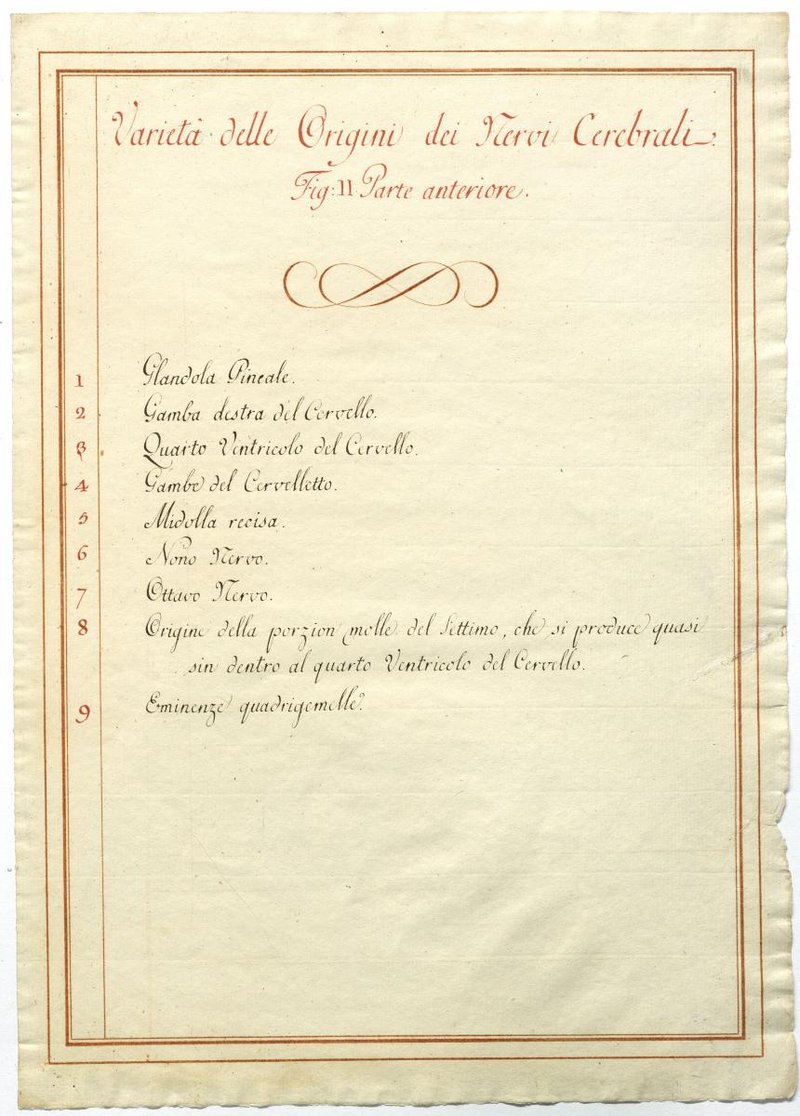 Varietà delle Origini dei Nervi Cerebrali.
Fig: II Parte anteriore.
1 Glandola Pineale.
2 Gamba destra del Cervello.
3 Quarto Ventricolo del Cervello.
4 Gambe del Cervelletto.
5 Midolla recisa.
6 Nono Nervo.
7 Ottavo Nervo.
8 Origine della porzion molle del Settimo, che si produce quasi
sin dentro al quarto Ventricolo del Cervello.
9 Eminenze quadrigemelle.